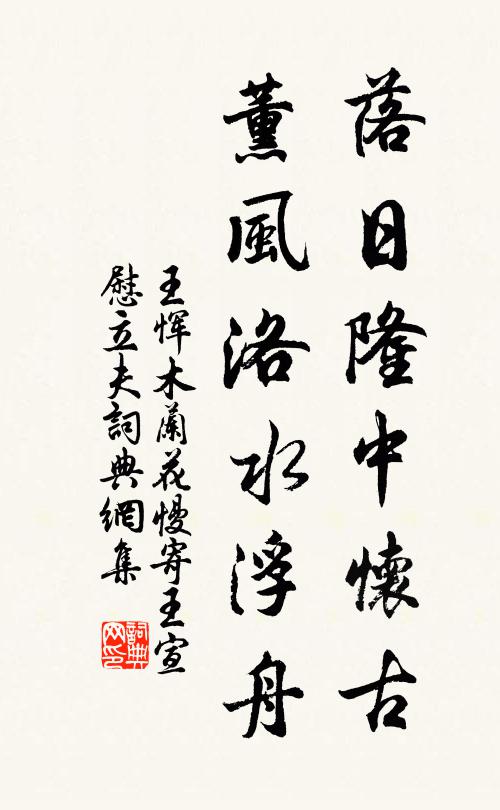 落日隆中懷古
薰風洛水浮舟
王惲木蘭花慢寄王宣
慰立夫詞典網集
詞典网印